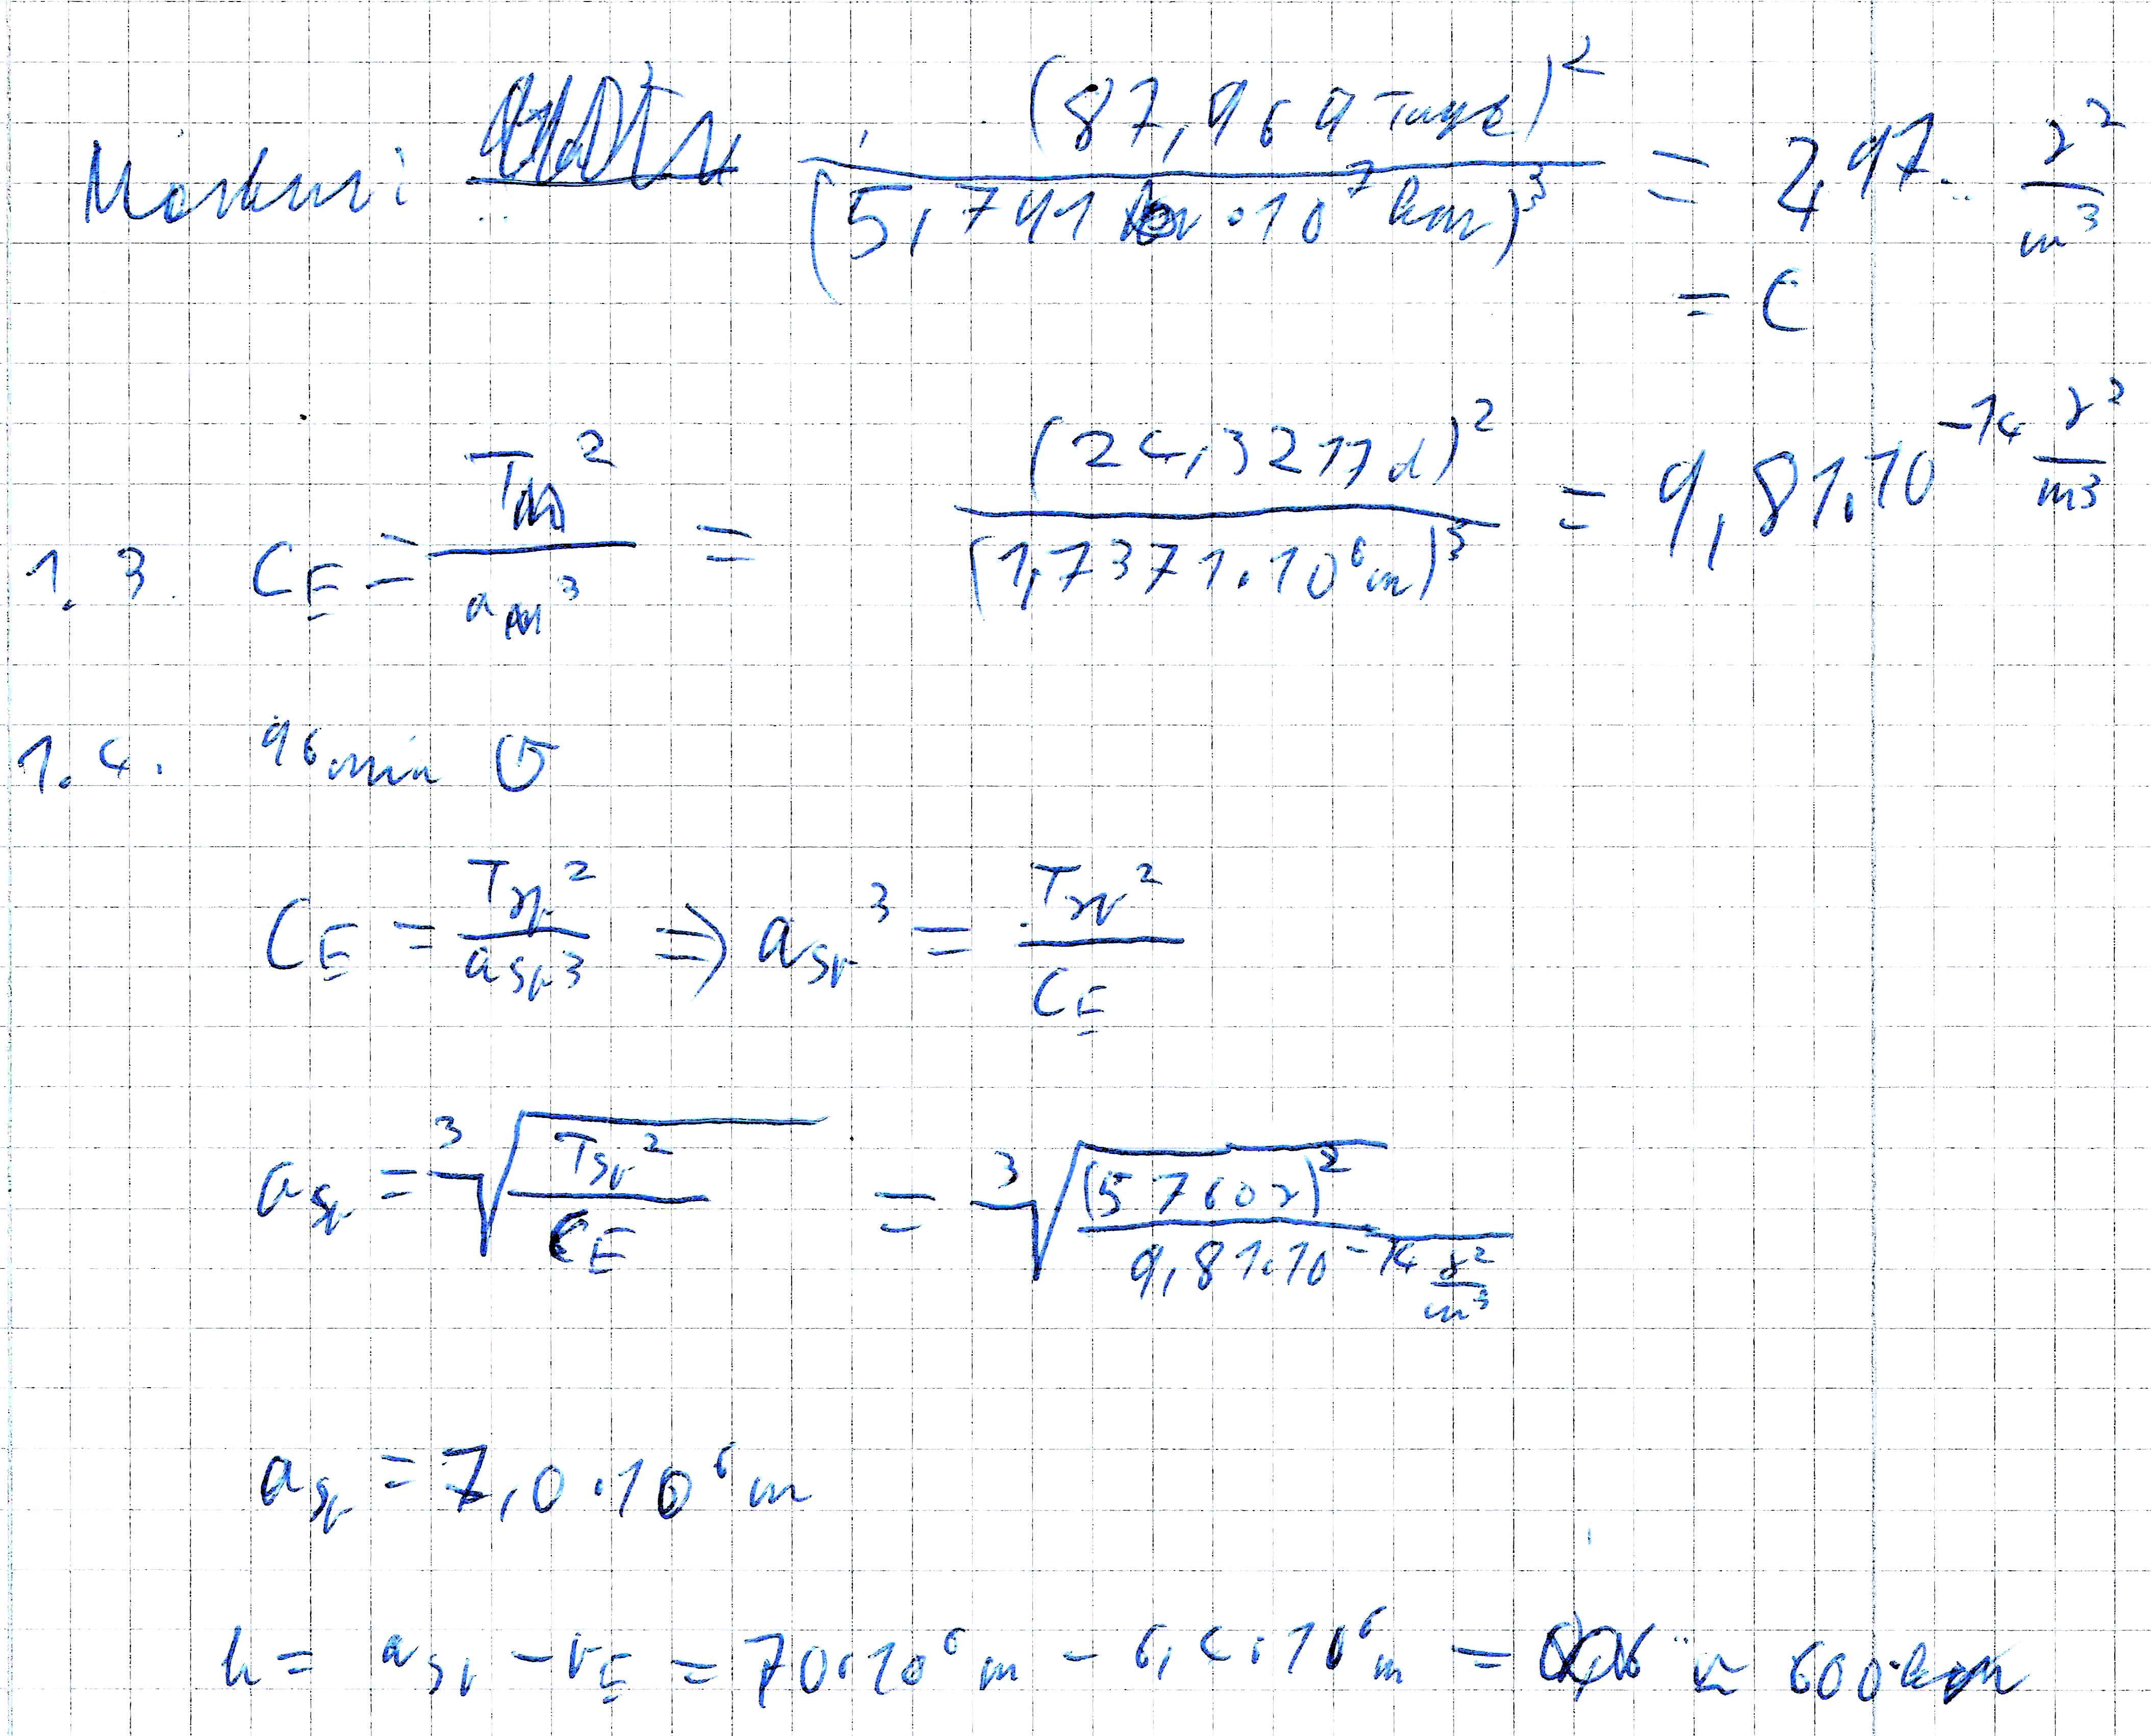 Merkur: (87,969 Tage)² / (5,791 · 10⁷ km)³ = 2,97.. s²/m³
= C
1.3. C_E = T_M² / a_M³ = (24,3217 d)² / (1,7371 · 10⁶ m)³ = 9,81 · 10⁻¹⁴ s²/m³
1.4. 96 min ℧
C_E = T_Sp² / a_Sp³ ⇒ a_Sp³ = T_Sp² / C_E
a_Sp = ³√(T_Sp² / C_E) = ³√((5760 s)² / (9,81 · 10⁻¹⁴ s²/m³))
a_Sp = 7,0 · 10⁶ m
h = a_Sp − r_E = 70 · 10⁶ m − 6,4 · 10⁶ m = 0,6 .. ≈ 600 km